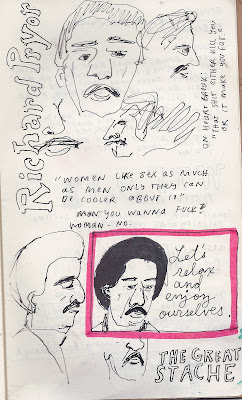 Richard Pryor
ON HEART BREAK:
"THAT SHIT EITHER KILL YOU
OR IT MAKE YOU FAT."
"WOMEN LIKE SEX AS MUCH
AS MEN ONLY THEY CAN
BE COOLER ABOUT IT."
MAN- YOU WANNA FUCK?
WOMAN- NO.
Let's
relax
and
enjoy
ourselves.
THE GREAT
STACHE